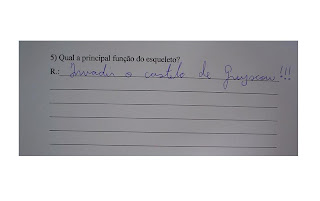 5) Qual a principal função do esqueleto?
R.: Invadir o castelo de Greyscow!!!